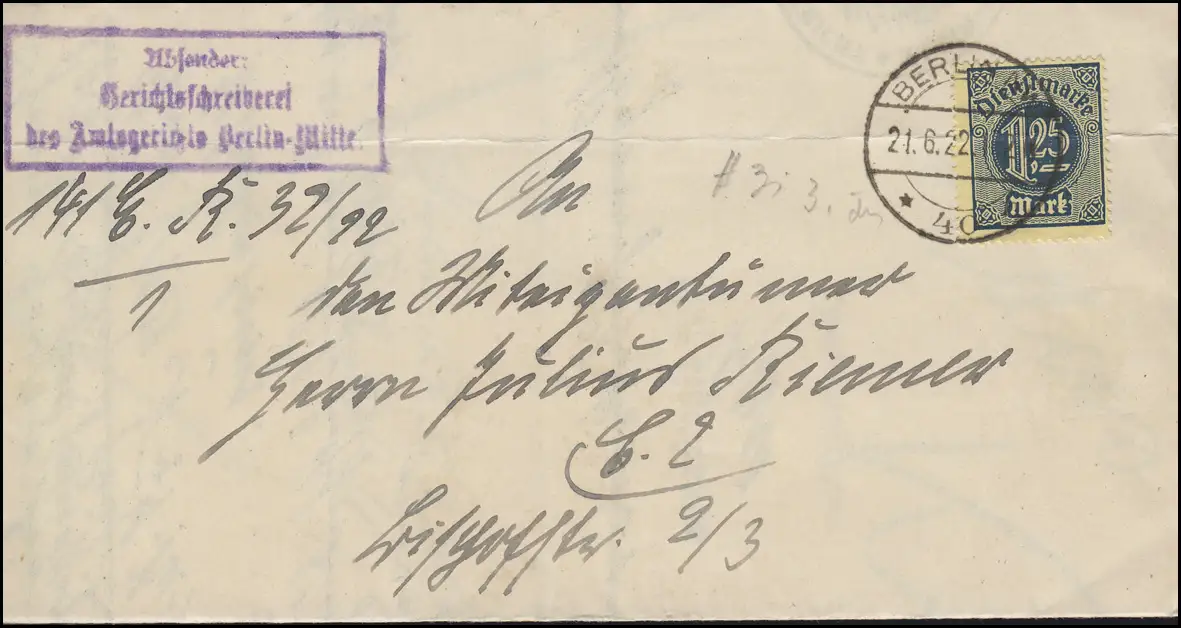 Absender:
Gerichtsschreiberei
des Amtsgerichts Berlin-Mitte.
BERLIN
21.6.22
* 40
Dienstmarke
1,25
Mark
141 C. K. 32/22
1
An
den Miteigentümer
Herrn Julius Riemer
C. 2
Bischofstr. 2/3